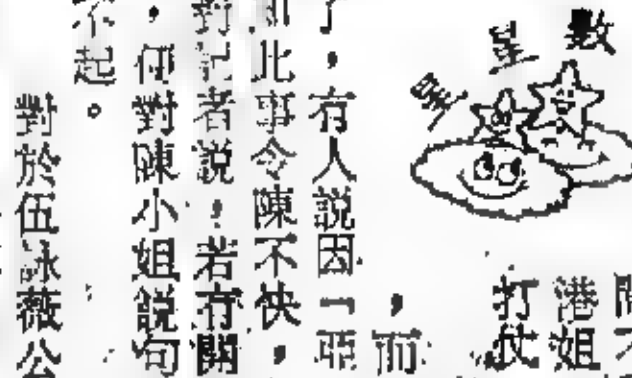 數星星
港姐
打仗
，而
了，有人説因「亞
此事令陳不快，
對記者説：若有關
，何對陳小姐説句
不起。
對於伍詠薇公